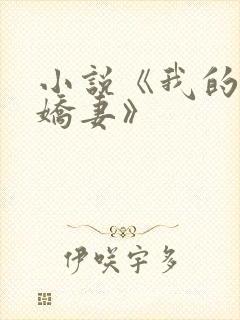 小說《我的
嬌妻》
伊咲宇多